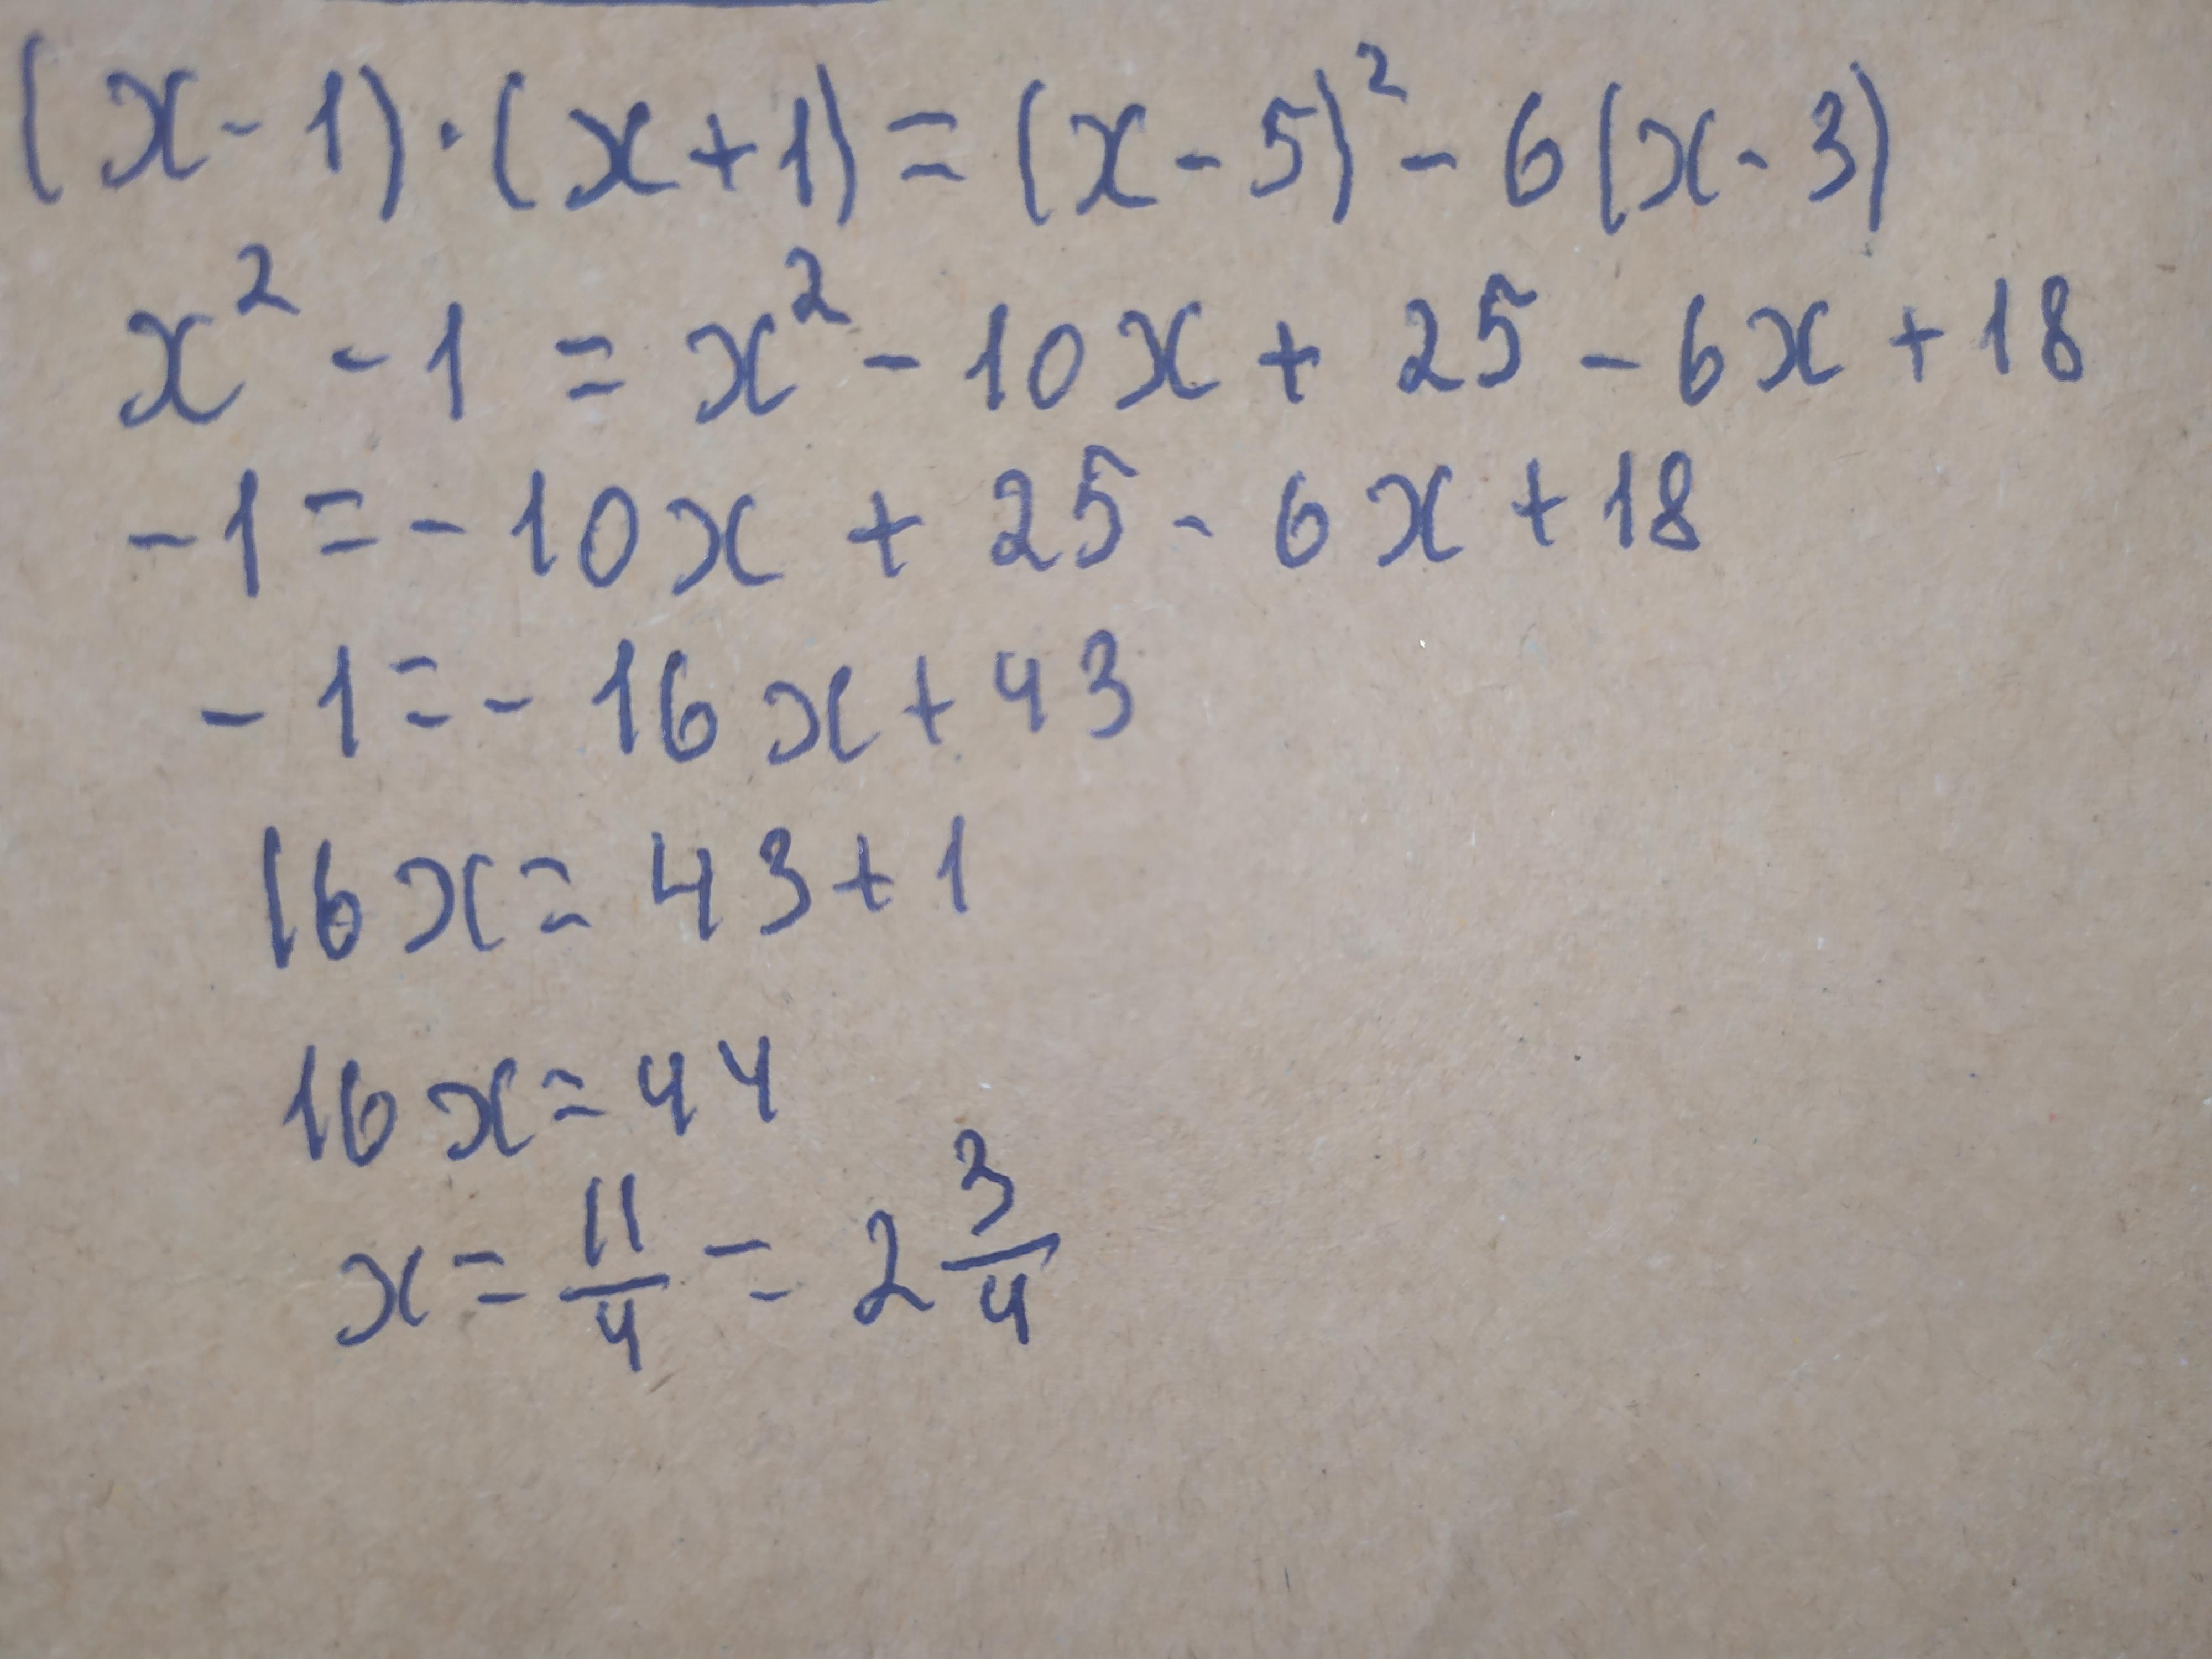 (x-1)·(x+1)=(x-5)²-6(x-3)
x²-1=x²-10x+25-6x+18
-1=-10x+25-6x+18
-1=-16x+43
16x=43+1
16x=44
x=11/4=2 3/4